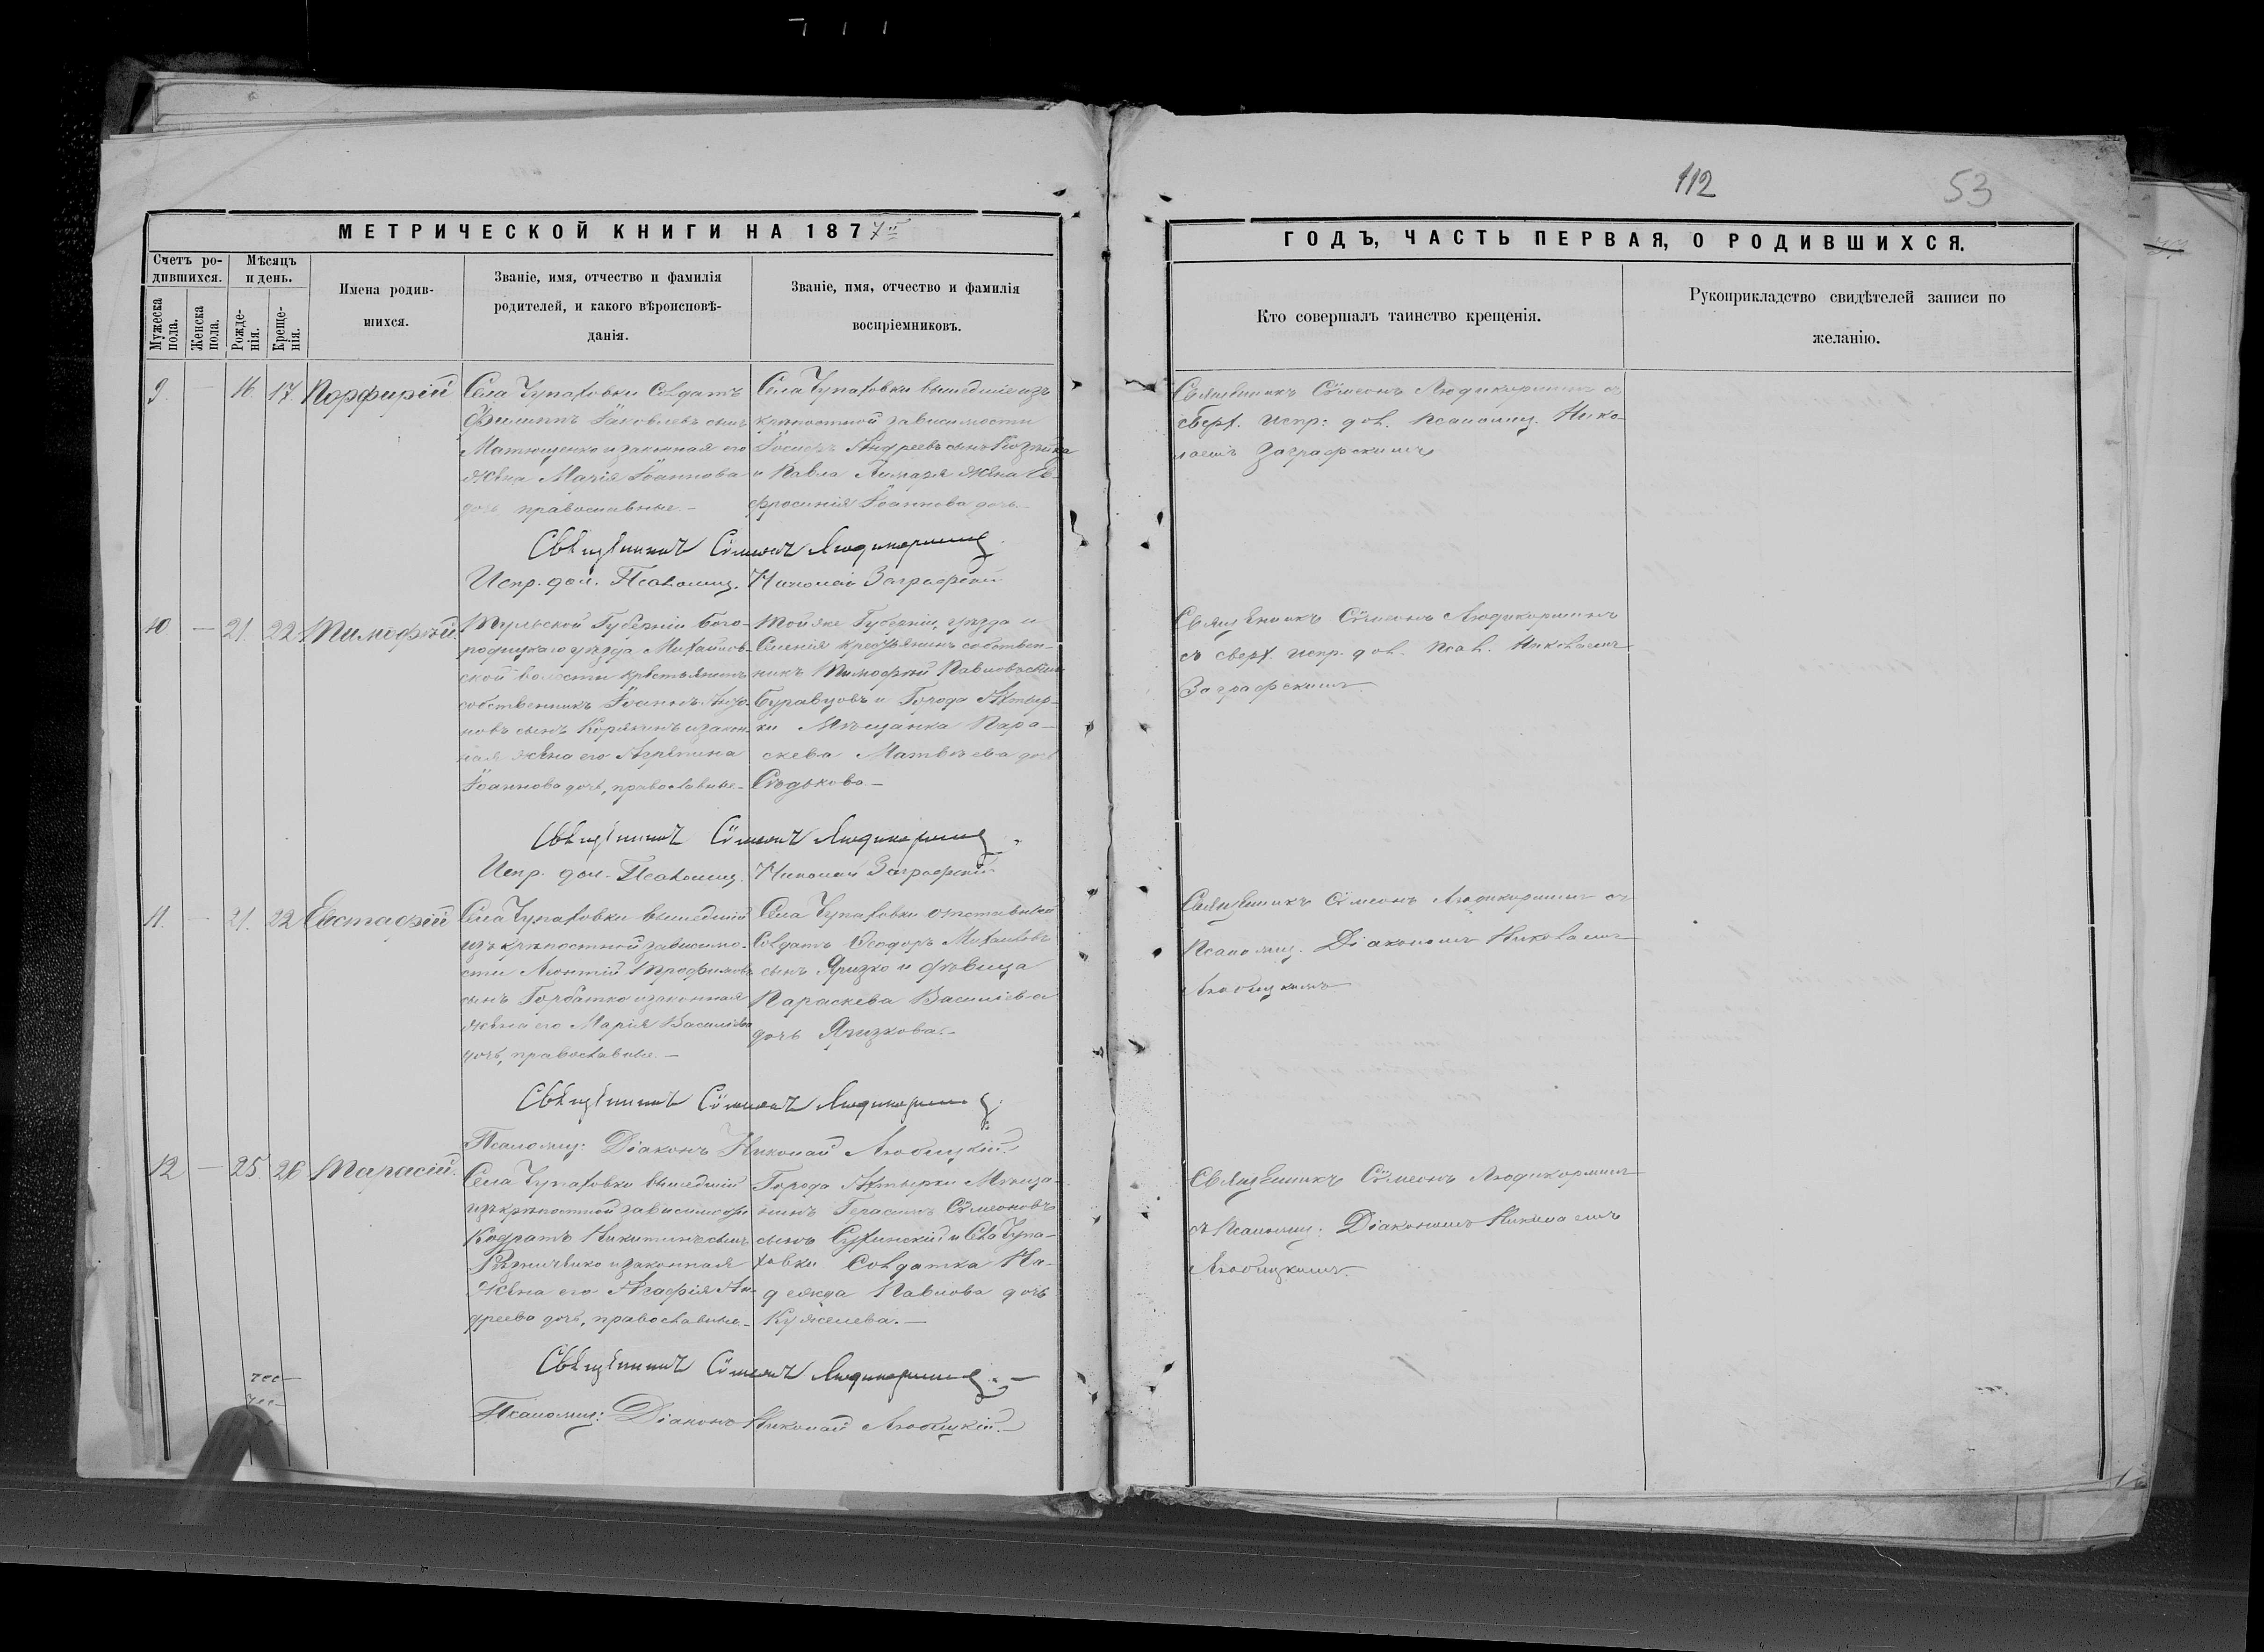 112
53
МЕТРИЧЕСКОЙ КНИГИ НА 1877й
ГОДЪ, ЧАСТЬ ПЕРВАЯ, О РОДИВШИХСЯ.
Счетъ родившихся.
Мужеска пола.
Женска пола.
Мѣсяцъ и день.
Рожденія.
Крещенія.
Имена родившихся.
Званіе, имя, отчество и фамилія
родителей, и какого вѣроисповѣ-
данія.
Званіе, имя, отчество и фамилія
воспріемниковъ.
Кто совершалъ таинство крещенія.
Рукоприкладство свидѣтелей записи по
желанію.
9. — 16. 17. Порфирій
Села Чупаховки Солдатъ
Филиппъ Іаковлевъ сынъ
Матющенко и законная его
жена Марія Іоаннова
дочь православные. —
Села Чупаховки вышедшіе изъ
крѣпостной зависимости
Іосифъ Андреевъ сынъ
и Павла жена Ев-
фросинія Іоаннова дочь. —
Священникъ Сѵмеонъ Людикорминъ съ
сверх. испр: дол. Псаломщ. Нико-
лаемъ Заграфскимъ
Священникъ Сѵмеонъ Людикорминъ
Испр. дол. Псаломщ. Николай Заграфскій
10 — 21. 22. Тимофей.
Тульской Губерніи Бого-
родицкаго уѣзда Михайлов-
ской волости крестьянинъ
собственникъ Іоаннъ
новъ сынъ и закон-
ная жена его Агрипина
Іоаннова дочь, православные. —
Той же Губерніи, уѣзда и
Селенія крестьянинъ собствен-
никъ Тимофей Павловъ сынъ
Буравцовъ и Города Ахтыр-
ки Мѣщанка Пара-
скева Матвѣева дочь
Сѣдькова. —
Священникъ Сѵмеонъ Людикорминъ
съ сверх. испр. дол. Псал. Николаемъ
Заграфскимъ.
Священникъ Сѵмеонъ Людикорминъ.
Испр. дол. Псаломщ. Николай Заграфскій
11. — 21. 22 Евстафій
Села Чупаховки вышедшій
изъ крѣпостной зависимо-
сти Леонтій Трофимовъ
сынъ Горбатко и законная
жена его Марія Василіева
дочь, православные. —
Села Чупаховки отставной
Солдатъ Ѳеодоръ Михаиловъ
сынъ и дѣвица
Параскева Василіева
дочь
Священникъ Сѵмеонъ Людикорминъ съ
Псаломщ. Діакономъ Николаемъ
Любицкимъ
Священникъ Сѵмеонъ Людикорминъ
Псаломщ: Діаконъ Николай Любицкій.
12 — 25. 26 Тарасій.
Села Чупаховки вышедшій
изъ крѣпостной зависимости
Кодратъ Никитинъ сынъ
и законная
жена его Агафія Ан-
дреева дочь, православные. —
Города Ахтырки Мѣща-
нинъ Герасимъ Сѵмеоновъ
сынъ Сухинскій и Села Чупа-
ховки Солдатка На-
дежда Павлова дочь
Кужелева. —
Священникъ Сѵмеонъ Людикорминъ
съ Псаломщ: Діакономъ Николаемъ
Любицкимъ.
Священникъ Сѵмеонъ Людикорминъ. —
Псаломщ: Діаконъ Николай Любицкій. —